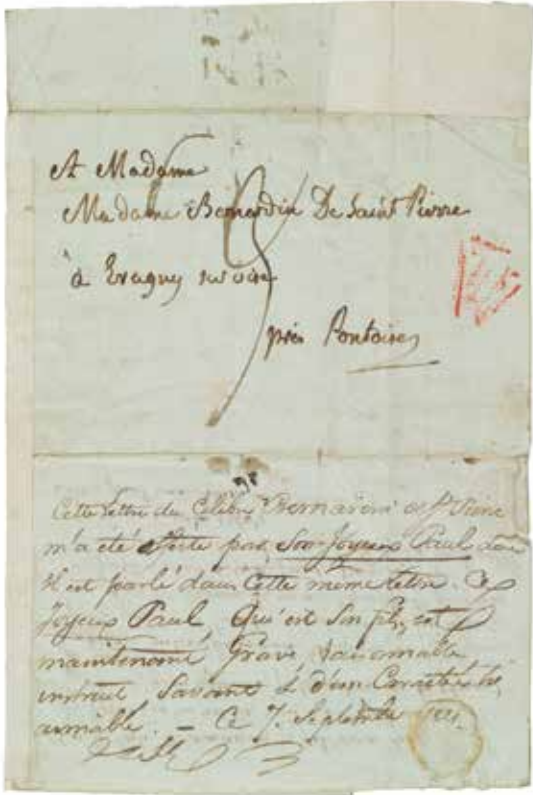 A Madame
Madame Bernardin De Saint Pierre
à Eragny sur oise
près Pontoise
Cette lettre du Célèbre Bernardin de St Pierre
m'a été offerte par Son Joyeux Paul dont
il est parlé dans Cette même lettre. Ce
Joyeux Paul, Qui est Son fils, est
maintenant Grave,
instruit Savant & d'un Caractère très
aimable. — Ce 7. Septembre